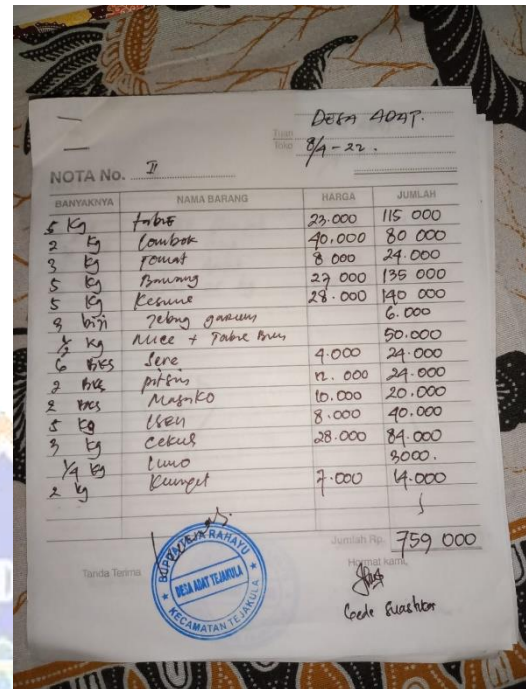 DESA ADAT.
Tuan
Toko 8/4-22.
NOTA No. II
BANYAKNYA NAMA BARANG HARGA JUMLAH
5 Kg tabie 23.000 115 000
2 Kg Lombok 40.000 80 000
3 Kg Tomat 8 000 24.000
5 Kg Bawang 27 000 135 000
5 Kg Kesune 28.000 140 000
3 biji garam 6.000
1/2 Kg Mice + Tabie Bun 50.000
6 BKS Sere 4.000 24.000
2 BKS 12.000 24.000
2 BKS Masako 10.000 20.000
5 Kg Isen 8.000 40.000
3 Kg Cekuh 28.000 84.000
1/4 Kg Limo 3000.
2 Kg Kunyit 7.000 14.000
Jumlah Rp. 759 000
Tanda Terima Hormat kami,
BUPDA TEJA RAHAYU
DESA ADAT TEJAKULA
KECAMATAN TEJAKULA
Gede